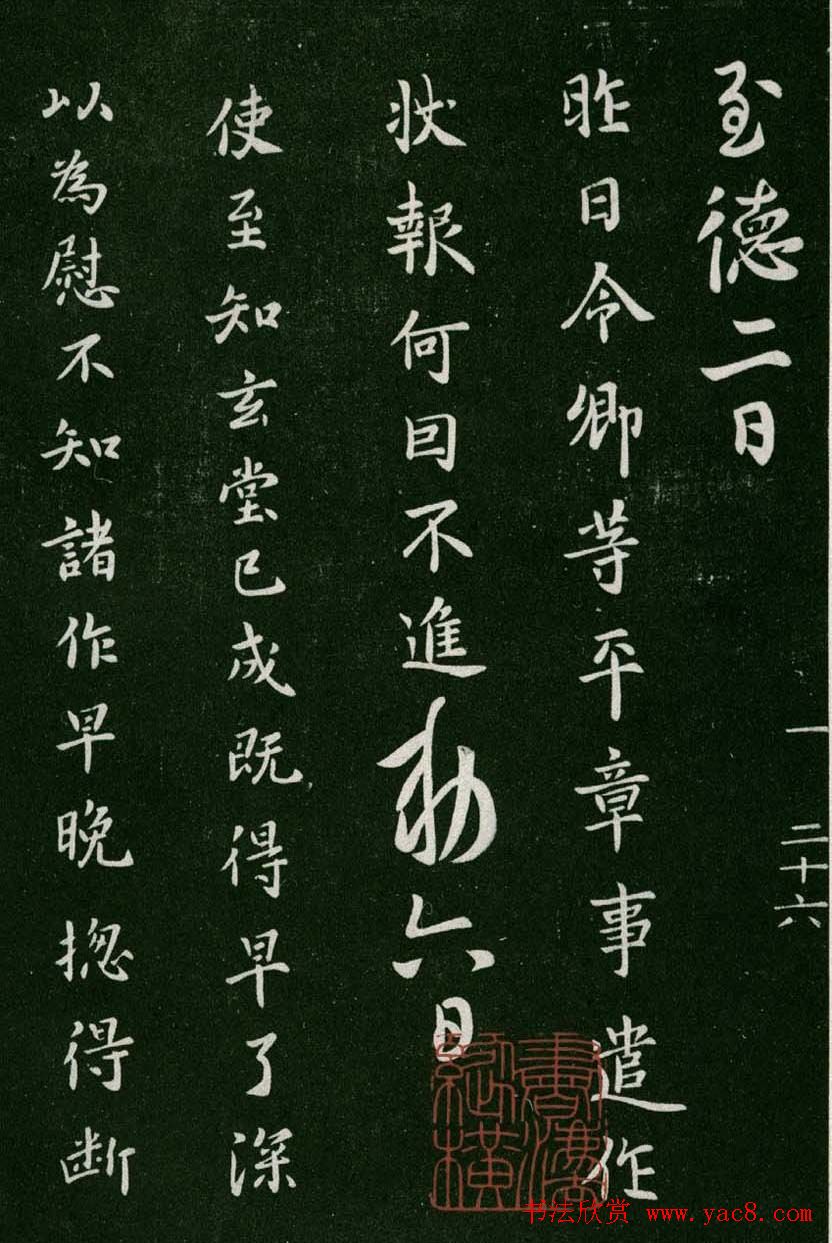 一 二十六
至德二日
昨日令卿等平章事遣作
狀報何囙不進勅六日
使至知玄堂已成既得早了深
以為慰不知諸作早晚揔得断
书法欣赏 www.yac8.com